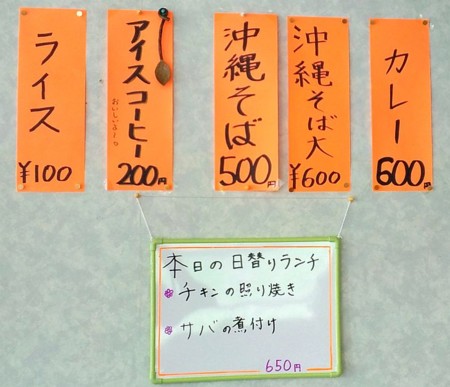 ライス
¥100
アイスコーヒー
200円
沖縄そば
500円
沖縄そば大
¥600
カレー
600円
本日の日替りランチ
チキンの照り焼き
サバの煮付け
650円